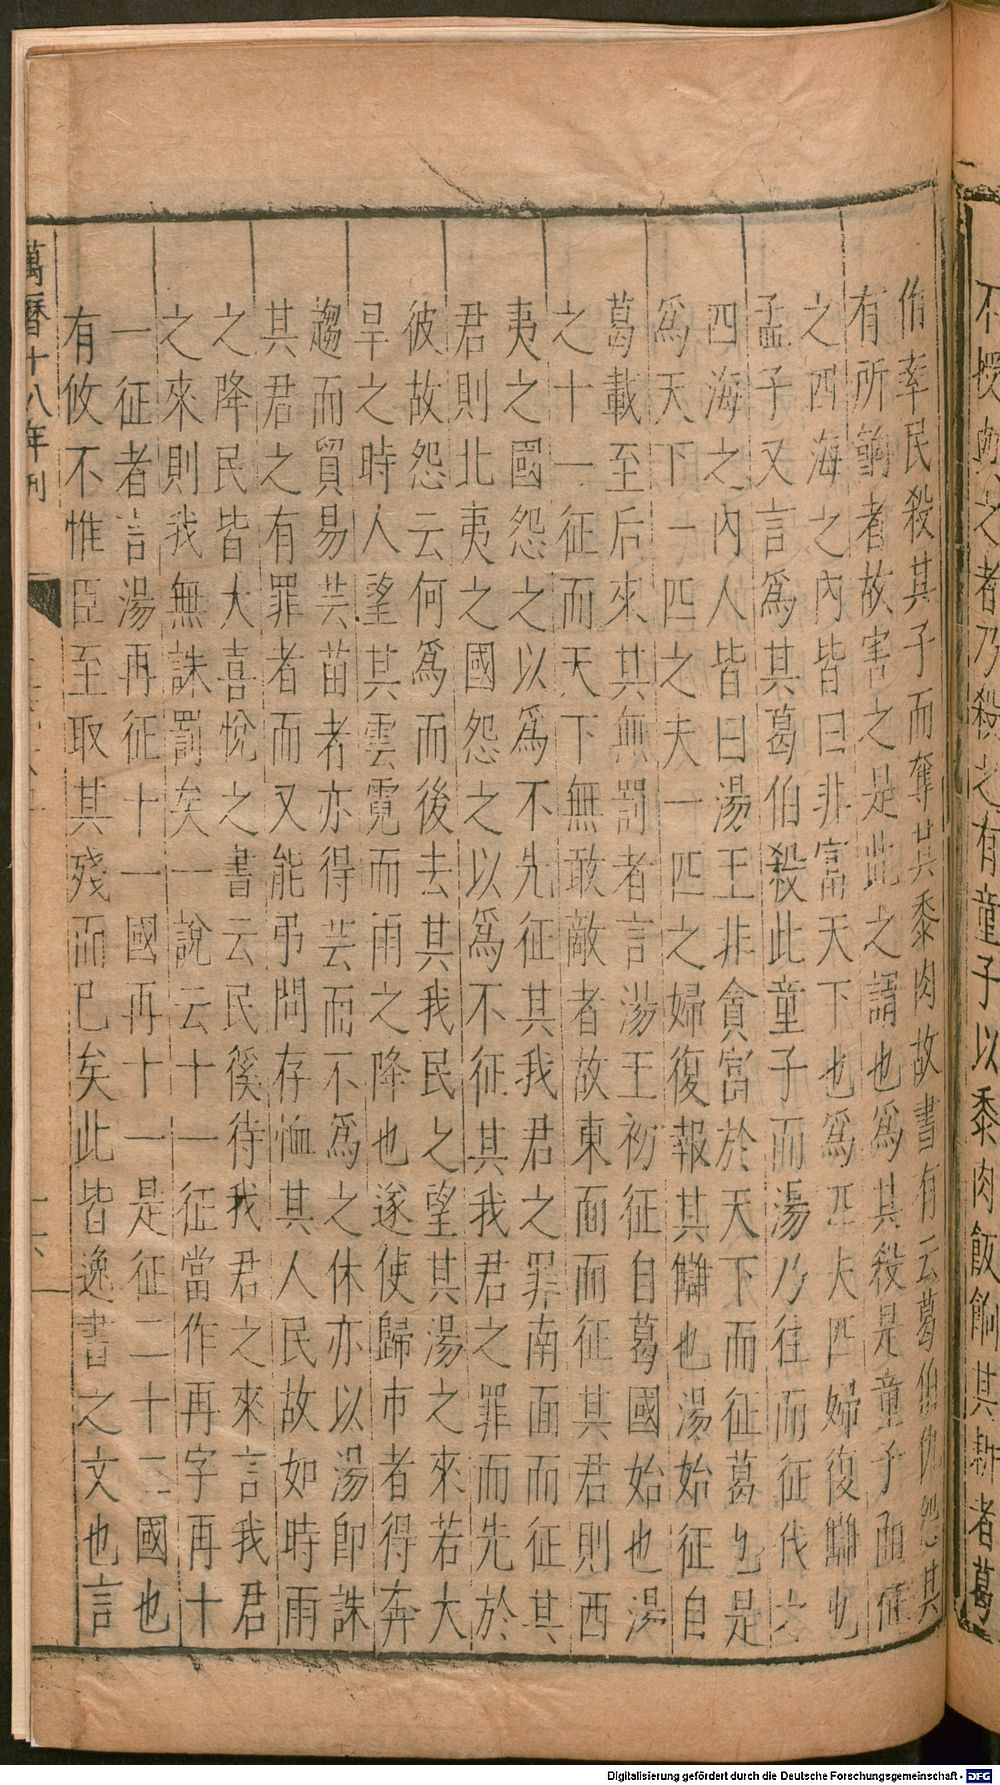 不授與之者乃殺之有童子以黍肉飯餉其耕者葛
伯率民殺其子而奪其黍肉故書有云葛伯仇怨其
有所餉者故害之是此之謂也為其殺是童子而征
之四海之內皆曰非富天下也為匹夫匹婦復讎也
孟子又言為其葛伯殺此童子而湯乃往而征伐之
四海之內人皆曰湯王非貪富於天下而征葛也是
為天下一匹之夫一匹之婦復報其讎也湯始征自
葛載至后來其無罰者言湯王初征自葛國始也湯
之十一征而天下無敢敵者故東面而征其君則西
夷之國怨之以為不先征其我君之罪南面而征其
君則北夷之國怨之以為不征其我君之罪而先於
彼故怨云何為而後去其我民之望其湯之來若大
旱之時人望其雲霓而雨之降也遂使歸市者得奔
趨而貿易芸苗者亦得芸而不為之休亦以湯即誅
其君之有罪者而又能弔問存恤其人民故如時雨
之降民皆大喜悅之書云民徯待我君之來言我君
之來則我無誅罰矣一說云十一征當作再字再十
一征者言湯再征十一國再十一是征二十二國也
有攸不惟臣至取其殘而已矣此皆逸書之文也言
萬曆十八年刊
Digitalisierung gefördert durch die Deutsche Forschungsgemeinschaft - DFG